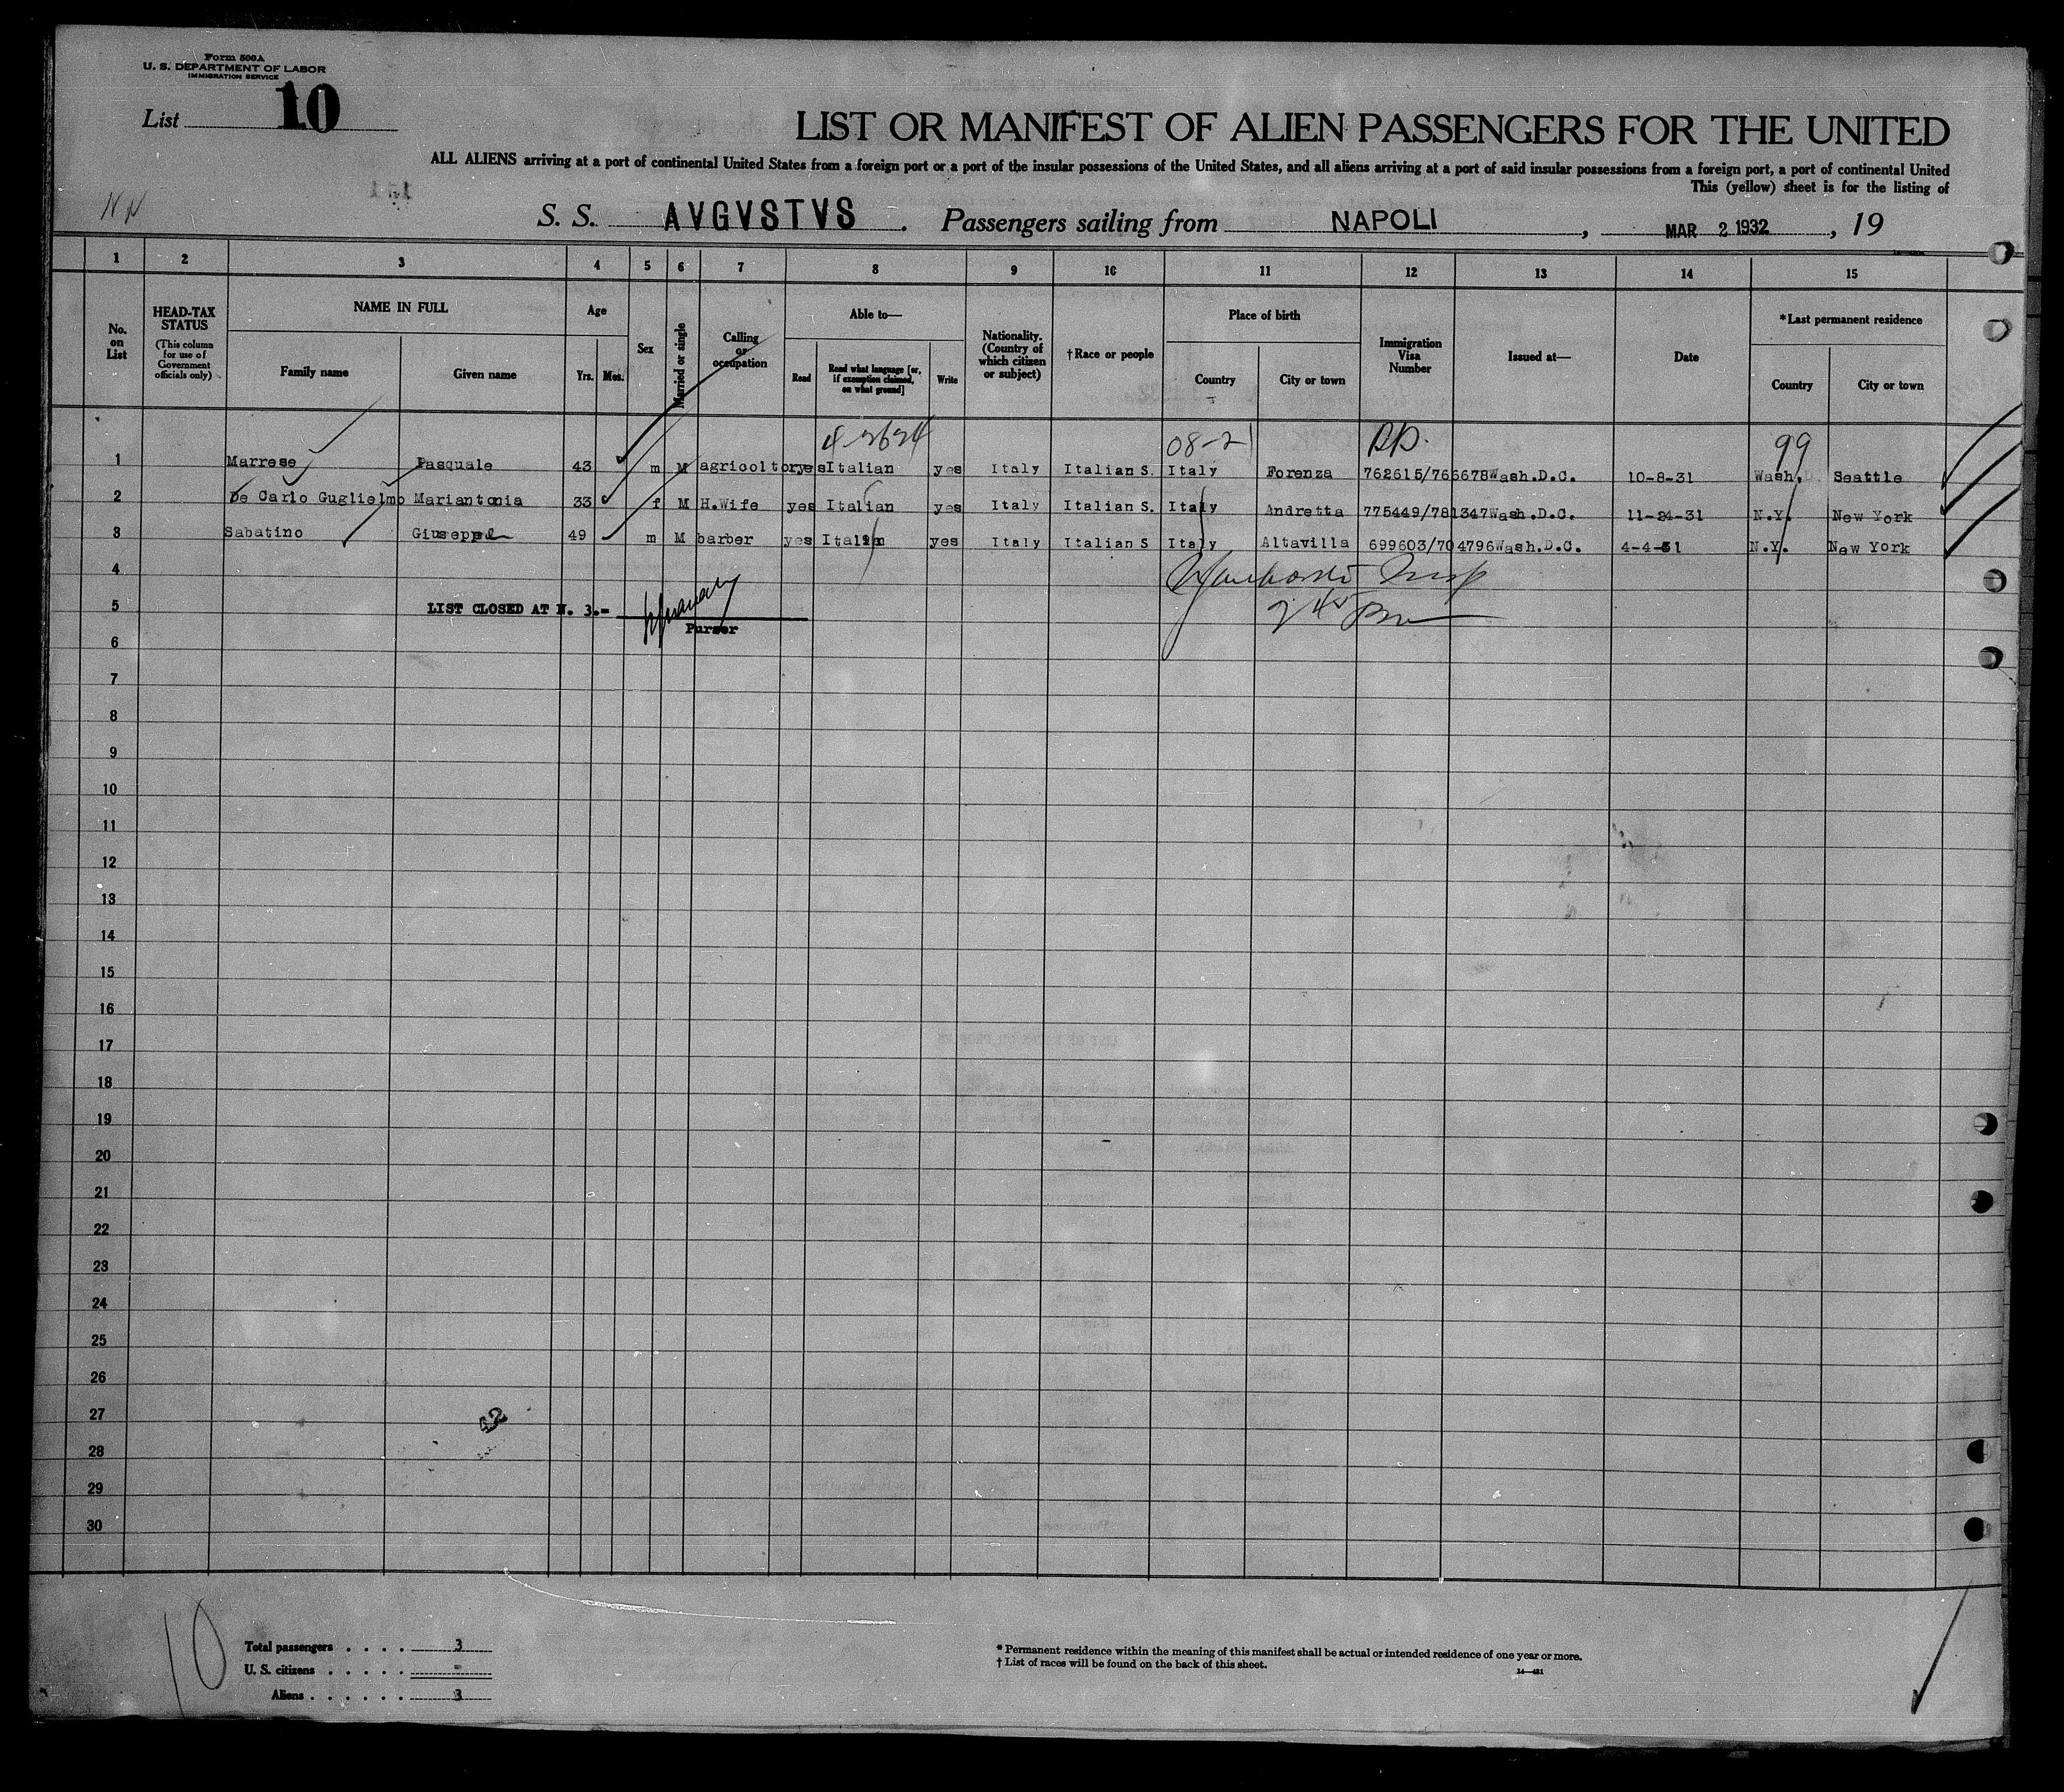 Form 500A
U. S. DEPARTMENT OF LABOR
IMMIGRATION SERVICE
List 10
LIST OR MANIFEST OF ALIEN PASSENGERS FOR THE UNITED
ALL ALIENS arriving at a port of continental United States from a foreign port or a port of the insular possessions of the United States, and all aliens arriving at a port of said insular possessions from a foreign port, a port of continental United
This (yellow) sheet is for the listing of
S. S. AVGVSTVS . Passengers sailing from NAPOLI , MAR 2 1932 , 19
1 2 3 4 5 6 7 8 9 10 11 12 13 14 15
No. on List
HEAD-TAX STATUS
(This column for use of Government officials only)
NAME IN FULL
Family name Given name
Age
Yrs. Mos.
Sex
Married or single
Calling or occupation
Able to—
Read Read what language [or, if exemption claimed, on what ground] Write
Nationality. (Country of which citizen or subject)
†Race or people
Place of birth
Country City or town
Immigration Visa Number
Issued at—
Date
*Last permanent residence
Country City or town
4-2624 08-21 99
1 Marrese Pasquale 43 m M agricoltore yes Italian yes Italy Italian S. Italy Forenza 762615/766678 Wash.D.C. 10-8-31 Wash. Seattle
2 De Carlo Guglielmo Mariantonia 33 f M H.Wife yes Italian yes Italy Italian S. Italy Andretta 775449/781347 Wash.D.C. 11-24-31 N.Y. New York
3 Sabatino Giuseppe 49 m M barber yes Italian yes Italy Italian S Italy Altavilla 699603/704796 Wash.D.C. 4-4-31 N.Y. New York
4
5 LIST CLOSED AT N. 3.-
Purser
6
7
8
9
10
11
12
13
14
15
16
17
18
19
20
21
22
23
24
25
26
27
42
28
29
30
10
Total passengers . . . . 3
U. S. citizens . . . . . -
Aliens . . . . . . 3
* Permanent residence within the meaning of this manifest shall be actual or intended residence of one year or more.
† List of races will be found on the back of this sheet.
14—481